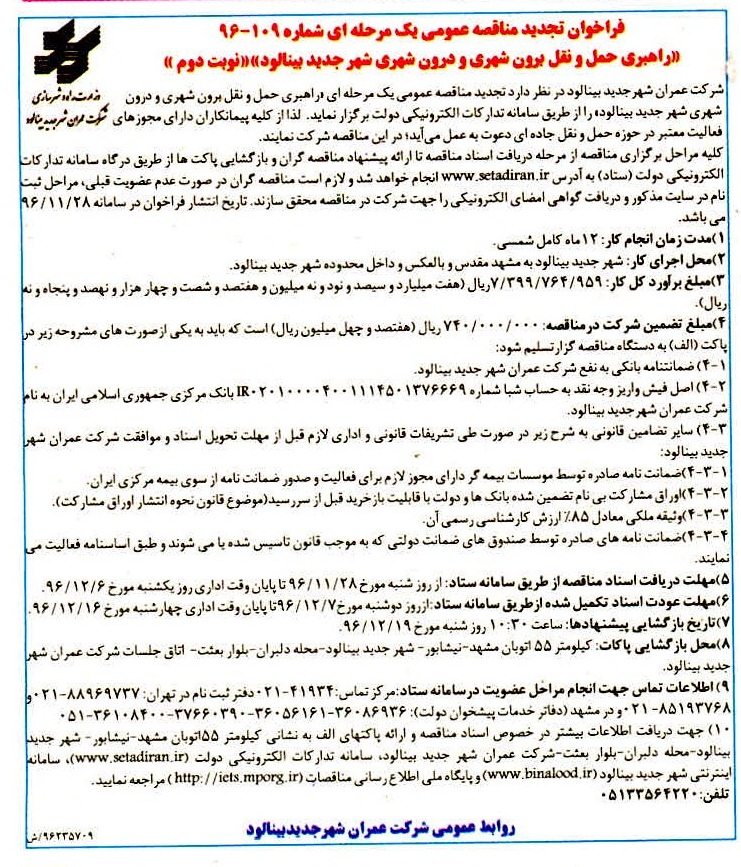 فراخوان تجدید مناقصه عمومی یک مرحله ای شماره ۱۰۹-۹۶
«راهبری حمل و نقل برون شهری و درون شهری شهر جدید بینالود»«نوبت دوم»
وزارت راه و شهرسازی
شرکت عمران شهر جدید بینالود
شرکت عمران شهر جدید بینالود در نظر دارد تجدید مناقصه عمومی یک مرحله ای «راهبری حمل و نقل برون شهری و درون
شهری شهر جدید بینالود» را از طریق سامانه تدارکات الکترونیکی دولت برگزار نماید. لذا از کلیه پیمانکاران دارای مجوزهای
فعالیت معتبر در حوزه حمل و نقل جاده ای دعوت به عمل می‌آید؛ در این مناقصه شرکت نمایند.
کلیه مراحل برگزاری مناقصه از مرحله دریافت اسناد مناقصه تا ارائه پیشنهاد مناقصه گران و بازگشایی پاکت ها از طریق درگاه سامانه تدارکات
الکترونیکی دولت (ستاد) به آدرس www.setadiran.ir انجام خواهد شد و لازم است مناقصه گران در صورت عدم عضویت قبلی، مراحل ثبت
نام در سایت مذکور و دریافت گواهی امضای الکترونیکی را جهت شرکت در مناقصه محقق سازند. تاریخ انتشار فراخوان در سامانه ۹۶/۱۱/۲۸
می باشد.
۱)مدت زمان انجام کار: ۱۲ ماه کامل شمسی.
۲)محل اجرای کار: شهر جدید بینالود به مشهد مقدس و بالعکس و داخل محدوده شهر جدید بینالود.
۳)مبلغ برآورد کل کار: ۷/۳۹۹/۷۶۴/۹۵۹ریال (هفت میلیارد و سیصد و نود و نه میلیون و هفتصد و شصت و چهار هزار و نهصد و پنجاه و نه
ریال).
۴)مبلغ تضمین شرکت در مناقصه: ۷۴۰/۰۰۰/۰۰۰ ریال (هفتصد و چهل میلیون ریال) است که باید به یکی از صورت های مشروحه زیر در
پاکت (الف) به دستگاه مناقصه گزار تسلیم شود:
۴-۱) ضمانتنامه بانکی به نفع شرکت عمران شهر جدید بینالود.
۴-۲) اصل فیش واریز وجه نقد به حساب شبا شماره IR۰۲۰۱۰۰۰۰۴۰۰۱۱۱۴۵۰۱۳۷۶۶۶۹ بانک مرکزی جمهوری اسلامی ایران به نام
شرکت عمران شهر جدید بینالود.
۴-۳) سایر تضامین قانونی به شرح زیر در صورت طی تشریفات قانونی و اداری لازم قبل از مهلت تحویل اسناد و موافقت شرکت عمران شهر
جدید بینالود:
۴-۳-۱)ضمانت نامه صادره توسط موسسات بیمه گر دارای مجوز لازم برای فعالیت و صدور ضمانت نامه از سوی بیمه مرکزی ایران.
۴-۳-۲)اوراق مشارکت بی نام تضمین شده بانک ها و دولت با قابلیت بازخرید قبل از سررسید(موضوع قانون نحوه انتشار اوراق مشارکت).
۴-۳-۳)وثیقه ملکی معادل ۸۵٪ ارزش کارشناسی رسمی آن.
۴-۳-۴)ضمانت نامه های صادره توسط صندوق های ضمانت دولتی که به موجب قانون تاسیس شده یا می شوند و طبق اساسنامه فعالیت می
نمایند.
۵)مهلت دریافت اسناد مناقصه از طریق سامانه ستاد: از روز شنبه مورخ ۹۶/۱۱/۲۸ تا پایان وقت اداری روز یکشنبه مورخ ۹۶/۱۲/۶.
۶)مهلت عودت اسناد تکمیل شده از طریق سامانه ستاد: از روز دوشنبه مورخ ۹۶/۱۲/۷ تا پایان وقت اداری چهارشنبه مورخ ۹۶/۱۲/۱۶.
۷)تاریخ بازگشایی پیشنهادها: ساعت ۱۰:۳۰ روز شنبه مورخ ۹۶/۱۲/۱۹.
۸)محل بازگشایی پاکات: کیلومتر ۵۵ اتوبان مشهد-نیشابور- شهر جدید بینالود-محله دلبران-بلوار بعثت- اتاق جلسات شرکت عمران شهر
جدید بینالود.
۹) اطلاعات تماس جهت انجام مراحل عضویت در سامانه ستاد: مرکز تماس: ۴۱۹۳۴-۰۲۱ دفتر ثبت نام در تهران: ۸۸۹۶۹۷۳۷-۰۲۱ و
۸۵۱۹۳۷۶۸-۰۲۱ و در مشهد (دفاتر خدمات پیشخوان دولت): ۳۶۰۸۶۹۳۶-۳۶۰۵۶۱۶۱-۳۷۶۶۰۳۹۰-۳۶۱۰۸۴۰۰-۰۵۱
۱۰) جهت دریافت اطلاعات بیشتر در خصوص اسناد مناقصه و ارائه پاکتهای الف به نشانی کیلومتر ۵۵اتوبان مشهد-نیشابور- شهر جدید
بینالود-محله دلبران-بلوار بعثت-شرکت عمران شهر جدید بینالود، سامانه تدارکات الکترونیکی دولت (www.setadiran.ir)، سامانه
اینترنتی شهر جدید بینالود (www.binalood.ir) و پایگاه ملی اطلاع رسانی مناقصات (http://iets.mporg.ir) مراجعه نمایید.
تلفن: ۰۵۱۳۳۵۶۴۲۲۰
روابط عمومی شرکت عمران شهر جدید بینالود
۹۶۲۳۵۷۰۹/ش